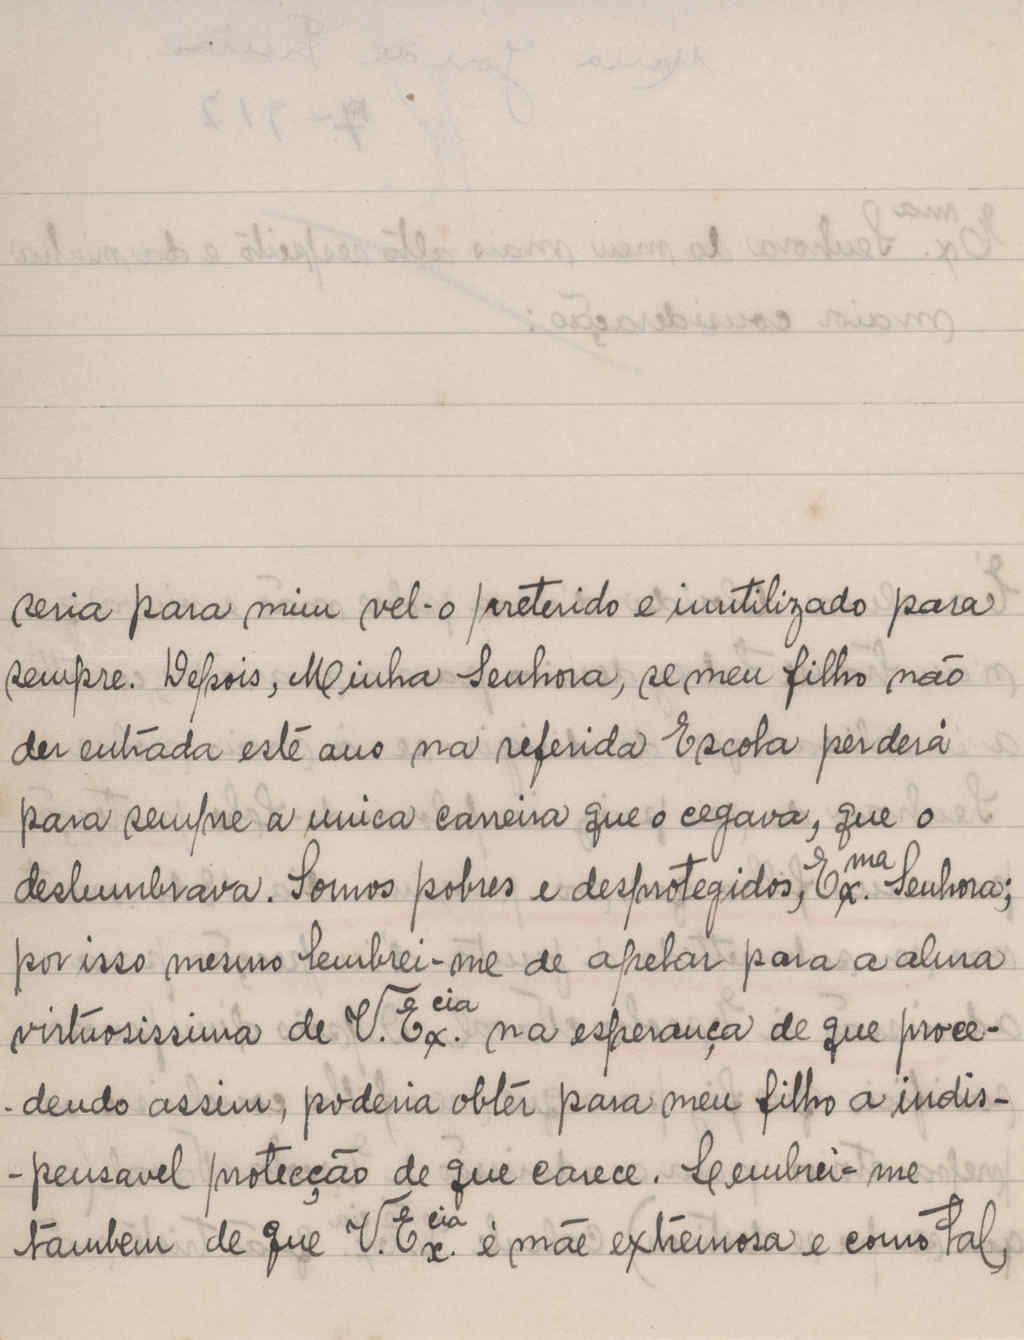 seria para mim vel-o preterido e inutilizado para
sempre. Depois, Minha Senhora, se meu filho não
der entrada este ano na referida Escola perderá
para sempre a unica carreira que o cegava, que o
deslumbrava. Somos pobres e desprotegidos, Ex.ma Senhora;
por isso mesmo lembrei-me de apelar para a alma
virtuosissima de V. Ex.cia na esperança de que proce-
-dendo assim, poderia obter para meu filho a indis-
-pensavel protecção de que carece. Lembrei-me
tambem de que V. Ex.cia é mãe extremosa e como tal,